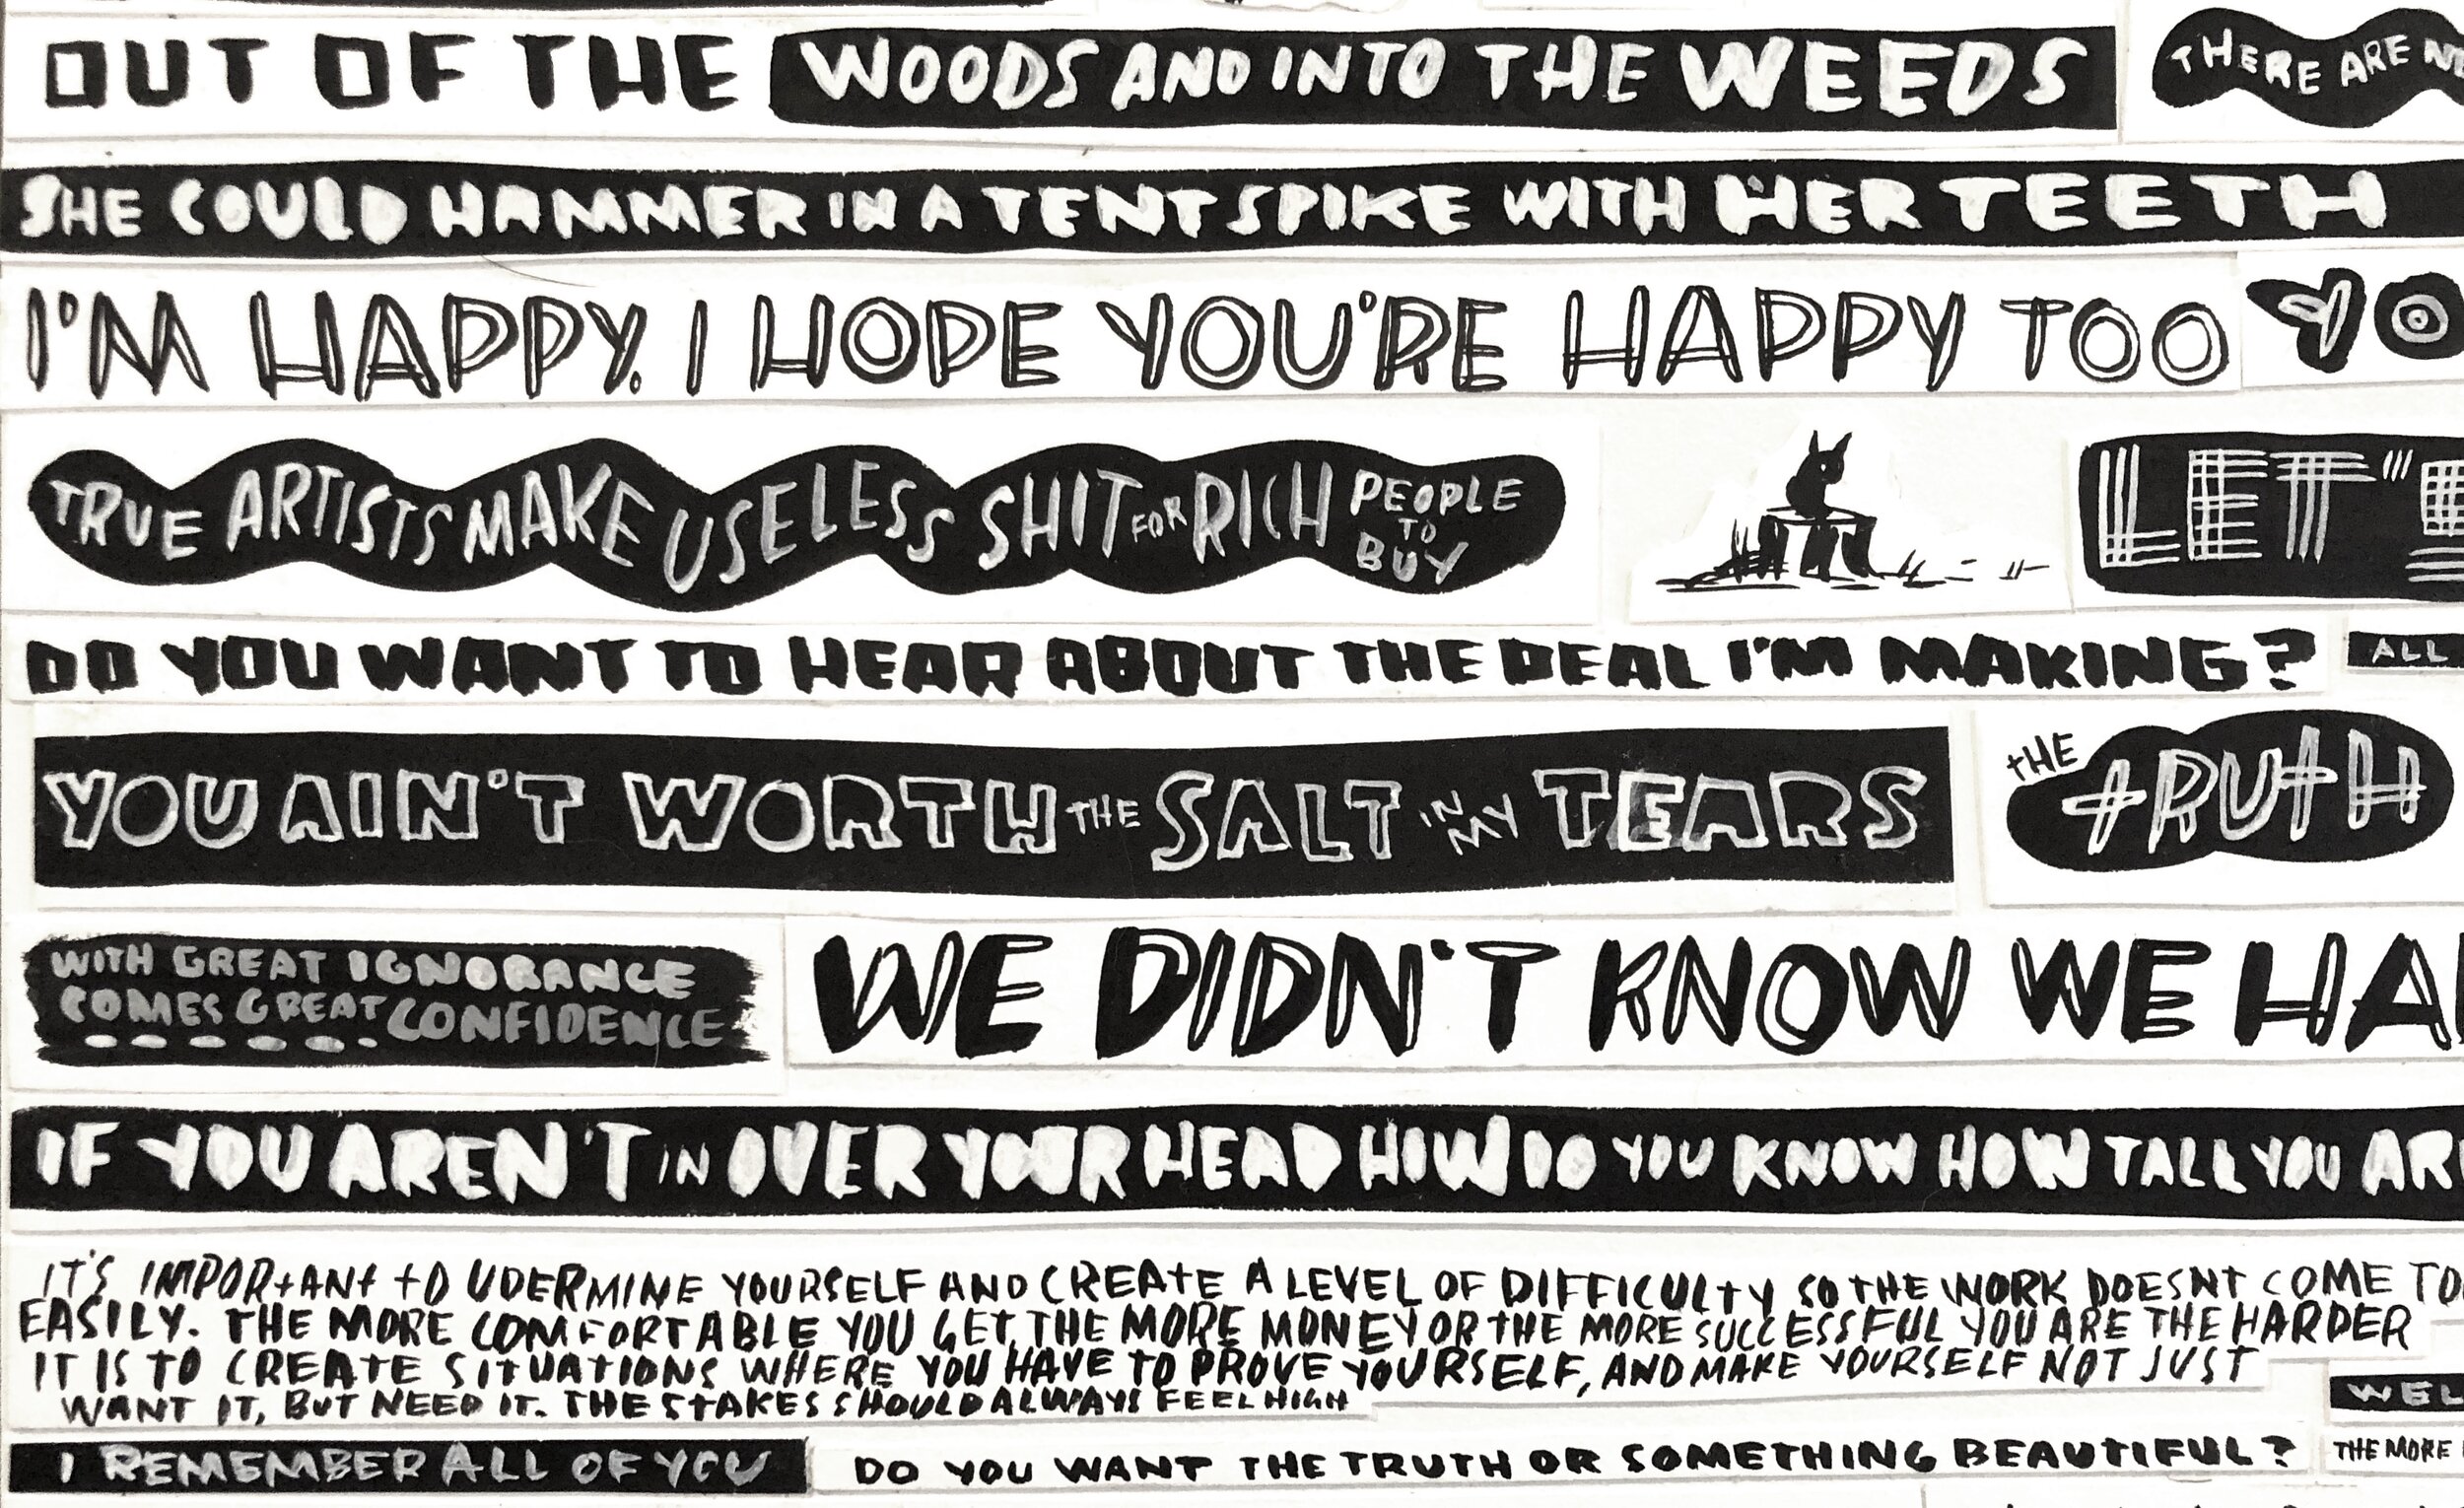 OUT OF THE WOODS AND INTO THE WEEDS
THERE ARE
SHE COULD HAMMER IN A TENT SPIKE WITH HER TEETH
I'M HAPPY. I HOPE YOU'RE HAPPY TOO
YO
TRUE ARTISTS MAKE USELESS SHIT FOR RICH PEOPLE TO BUY
LET'
DO YOU WANT TO HEAR ABOUT THE DEAL I'M MAKING?
ALL
YOU AIN'T WORTH THE SALT IN MY TEARS
THE TRUTH
WITH GREAT IGNORANCE
COMES GREAT CONFIDENCE
WE DIDN'T KNOW WE HA
IF YOU AREN'T IN OVER YOUR HEAD HOW DO YOU KNOW HOW TALL YOU AR
IT'S IMPORTANT TO UDERMINE YOURSELF AND CREATE A LEVEL OF DIFFICULTY SO THE WORK DOESNT COME TO
EASILY. THE MORE COMFORTABLE YOU GET, THE MORE MONEY OR THE MORE SUCCESSFUL YOU ARE THE HARDER
IT IS TO CREATE SITUATIONS WHERE YOU HAVE TO PROVE YOURSELF, AND MAKE YOURSELF NOT JUST
WANT IT, BUT NEED IT. THE STAKES SHOULD ALWAYS FEEL HIGH
WEL
I REMEMBER ALL OF YOU
DO YOU WANT THE TRUTH OR SOMETHING BEAUTIFUL?
THE MORE